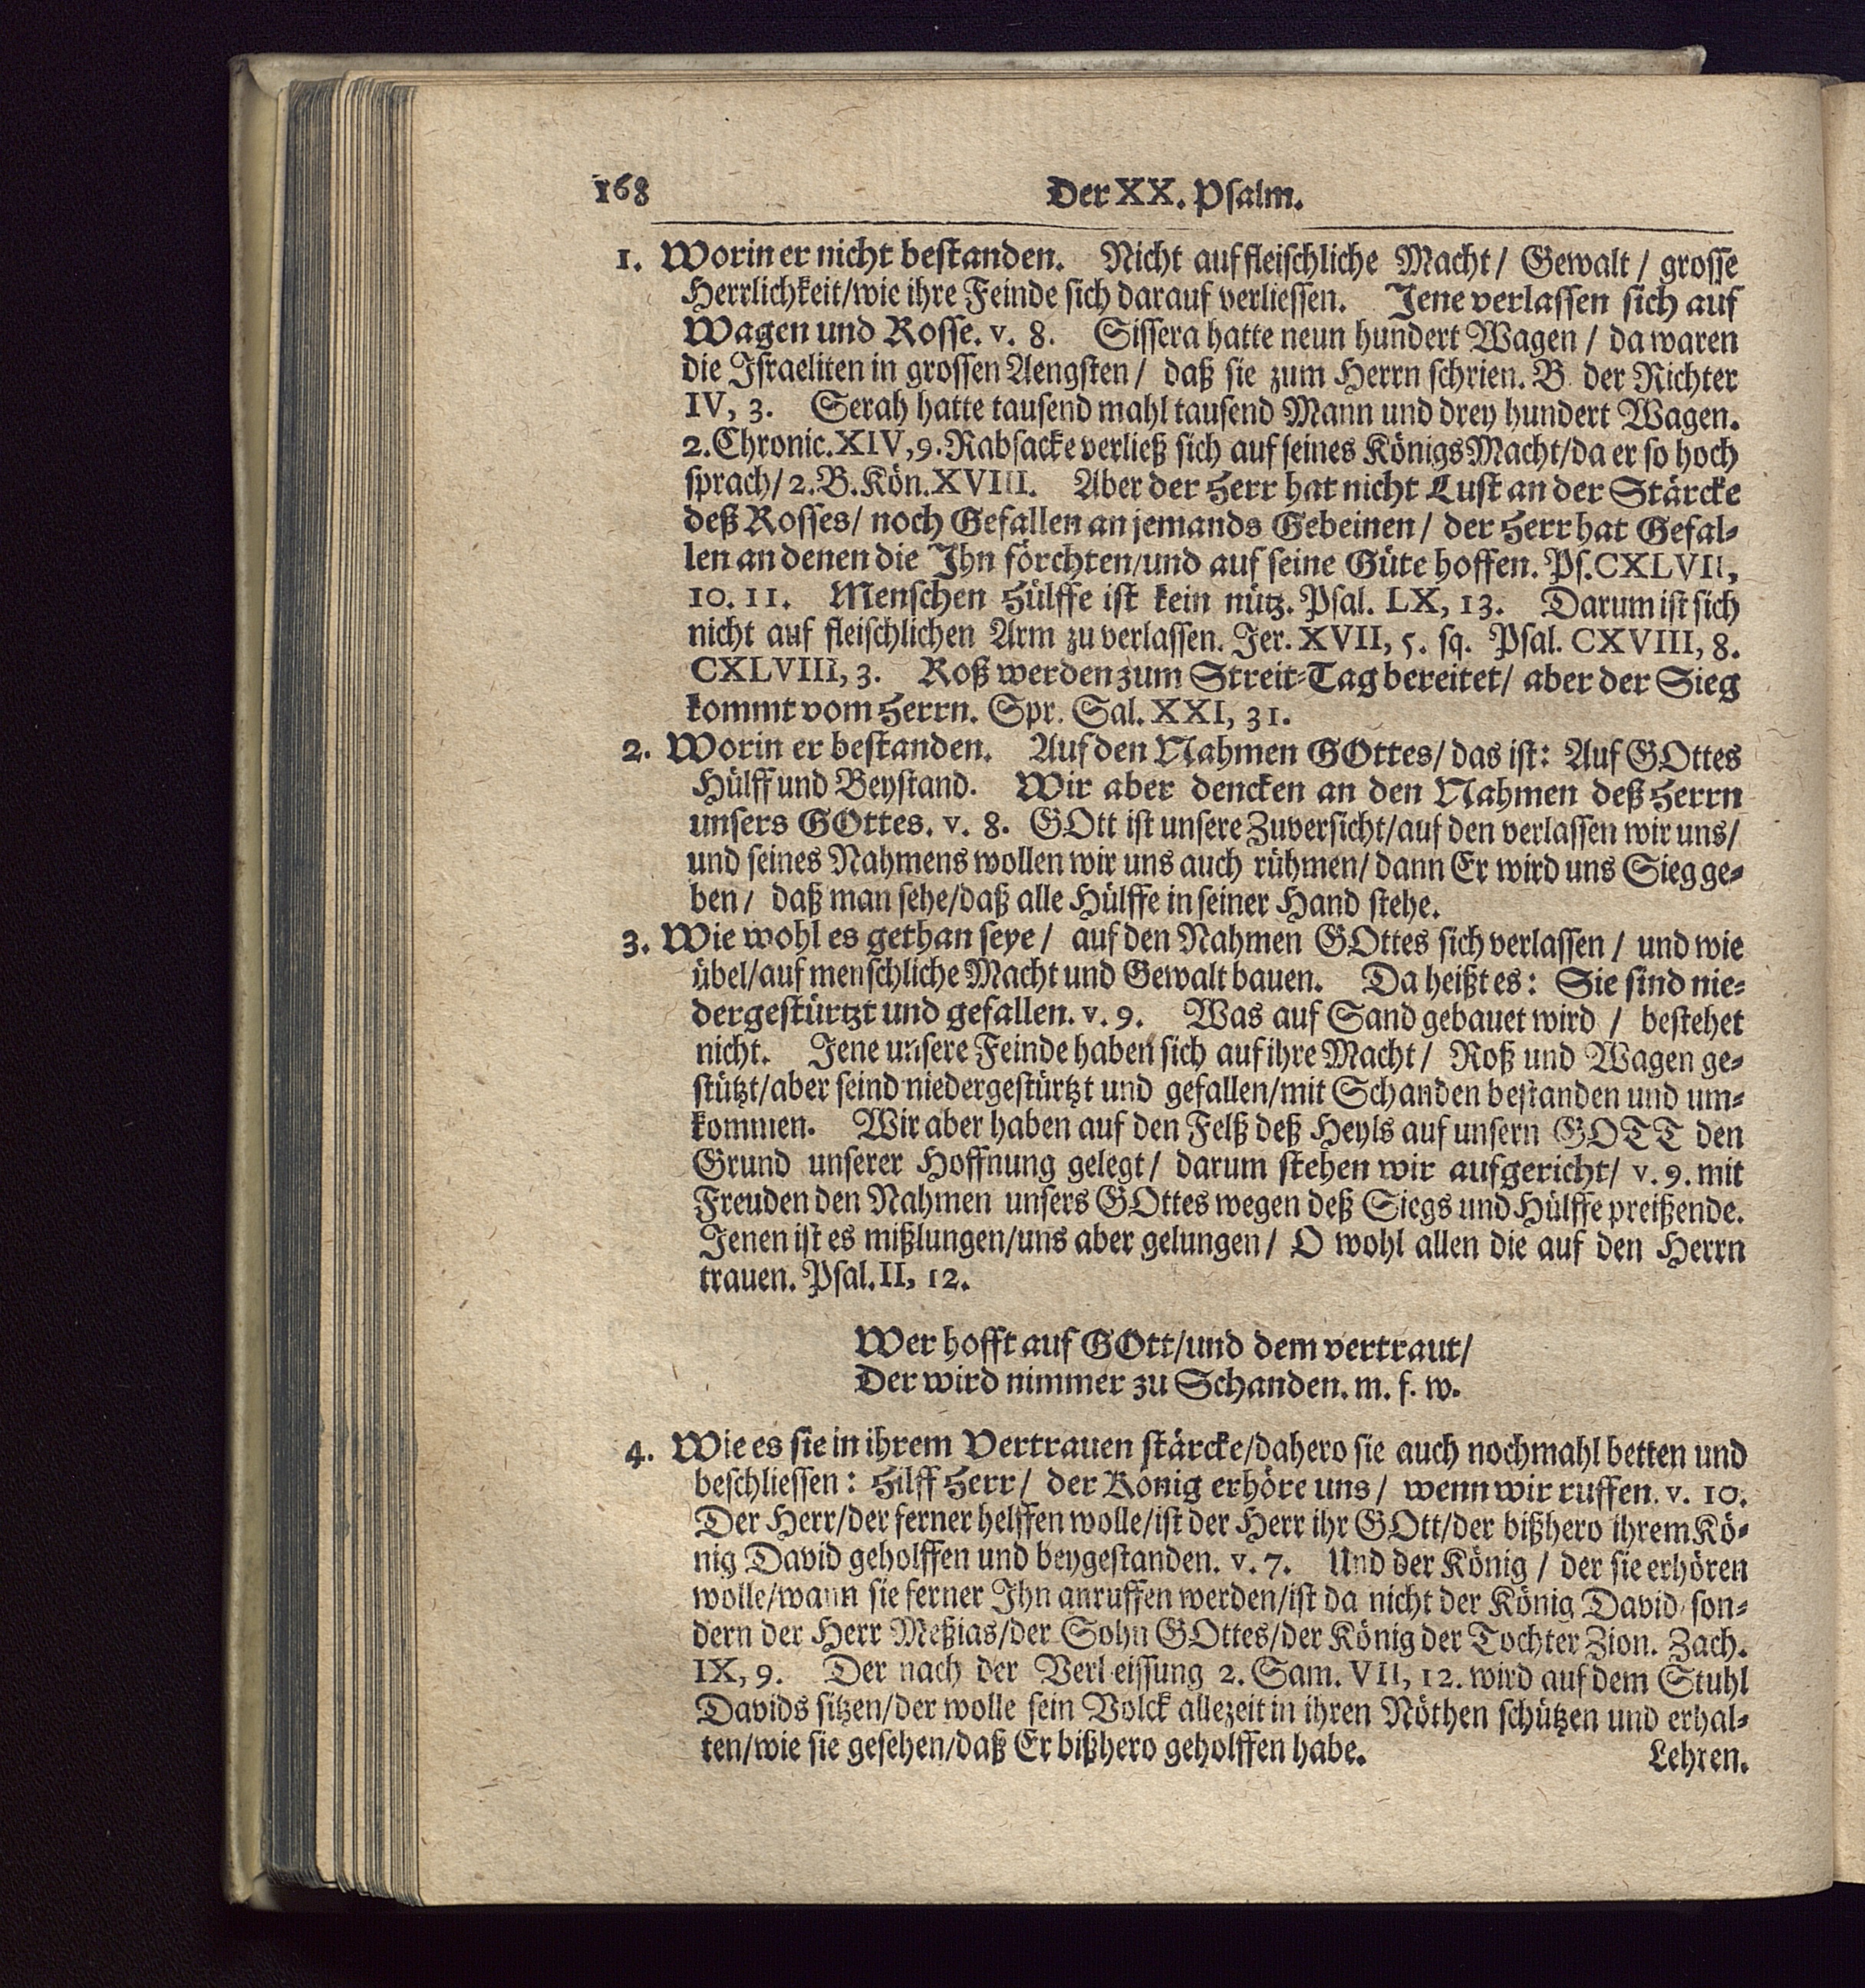 168 Der XX. Psalm.
1. Worin er nicht bestanden. Nicht auf fleischliche Macht/ Gewalt/ grosse
Herrlichkeit/wie ihre Feinde sich darauf verliessen. Jene verlassen sich auf
Wagen und Rosse. v. 8. Sissera hatte neun hundert Wagen/ da waren
die Israeliten in grossen Aengsten/ daß sie zum Herrn schrien. B. der Richter
IV, 3. Serah hatte tausend mahl tausend Mann und drey hundert Wagen.
2. Chronic. XIV, 9. Rabsacke verließ sich auf seines Königs Macht/da er so hoch
sprach/ 2. B. Kön. XVIII. Aber der Herr hat nicht Lust an der Stärcke
deß Rosses/ noch Gefallen an jemands Gebeinen/ der Herr hat Gefal-
len an denen die Ihn förchten/und auf seine Güte hoffen. Ps. CXLVII,
10. 11. Menschen Hülffe ist kein nütz. Psal. LX, 13. Darum ist sich
nicht auf fleischlichen Arm zu verlassen. Jer. XVII, 5. sq. Psal. CXVIII, 8.
CXLVIII, 3. Roß werden zum Streit-Tag bereitet/ aber der Sieg
kommt vom Herrn. Spr. Sal. XXI, 31.
2. Worin er bestanden. Auf den Nahmen GOttes/ das ist: Auf GOttes
Hülff und Beystand. Wir aber dencken an den Nahmen deß Herrn
unsers GOttes. v. 8. GOtt ist unsere Zuversicht/auf den verlassen wir uns/
und seines Nahmens wollen wir uns auch rühmen/ dann Er wird uns Sieg ge-
ben/ daß man sehe/daß alle Hülffe in seiner Hand stehe.
3. Wie wohl es gethan seye/ auf den Nahmen GOttes sich verlassen/ und wie
übel/auf menschliche Macht und Gewalt bauen. Da heißt es: Sie sind nie-
dergestürtzt und gefallen. v. 9. Was auf Sand gebauet wird/ bestehet
nicht. Jene unsere Feinde haben sich auf ihre Macht/ Roß und Wagen ge-
stützt/aber seind niedergestürtzt und gefallen/mit Schanden bestanden und um-
kommen. Wir aber haben auf den Felß deß Heyls auf unsern GOTT den
Grund unserer Hoffnung gelegt/ darum stehen wir aufgericht/ v. 9. mit
Freuden den Nahmen unsers GOttes wegen deß Siegs und Hülffe preißende.
Jenen ist es mißlungen/uns aber gelungen/ O wohl allen die auf den Herrn
trauen. Psal. II, 12.
Wer hofft auf GOtt/und dem vertraut/
Der wird nimmer zu Schanden. m. f. w.
4. Wie es sie in ihrem Vertrauen stärcke/dahero sie auch nochmahl betten und
beschliessen: Hilff Herr/ der König erhöre uns/ wenn wir ruffen. v. 10.
Der Herr/der ferner helffen wolle/ist der Herr ihr GOtt/der bißhero ihrem Kö-
nig David geholffen und beygestanden. v. 7. Und der König/ der sie erhören
wolle/wann sie ferner Ihn anruffen werden/ist da nicht der König David/ son-
dern der Herr Meßias/der Sohn GOttes/der König der Tochter Zion. Zach.
IX, 9. Der nach der Verheissung 2. Sam. VII, 12. wird auf dem Stuhl
Davids sitzen/der wolle sein Volck allezeit in ihren Nöthen schützen und erhal-
ten/wie sie gesehen/daß Er bißhero geholffen habe.
Lehren.